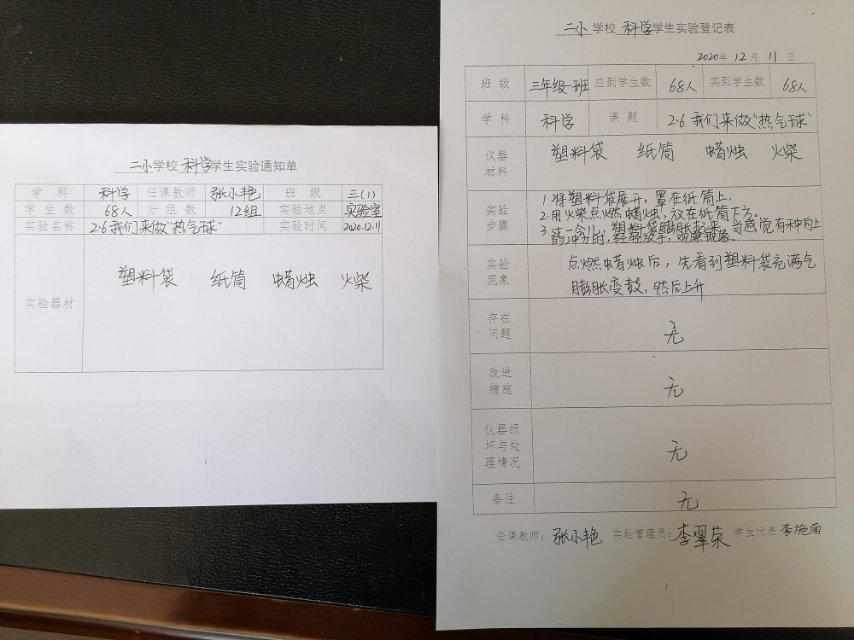 二小学校 科学学生实验通知单
学科 科学 任课教师 张小艳 班级 三(1)
学生数 68人 分组数 12组 实验地点 实验室
实验名称 2·6我们来做"热气球" 实验时间 2020.12.11
实验器材 塑料袋 纸筒 蜡烛 火柴
1
二小学校 科学学生实验登记表
2020年 12月 11日
班级 三年级一班 应到学生数 68人 实到学生数 68人
学科 科学 课题 2·6 我们来做"热气球"
仪器
材料
塑料袋 纸筒 蜡烛 火柴
实验
步骤
1.将塑料袋展开,罩在纸筒上.
2.用火柴点燃蜡烛,放在纸筒下方.
3.过一会儿,塑料袋膨胀起来,当感觉有种向上
的冲力时,轻轻放手,观察现象.
实验
现象
点燃蜡烛后,先看到塑料袋充满气
膨胀变鼓,然后上升
存在
问题
无
改进
措施
无
仪器损
坏与处
理情况
无
备注 无
任课教师: 张小艳 实验管理员: 李翠荣 学生代表 李施雨